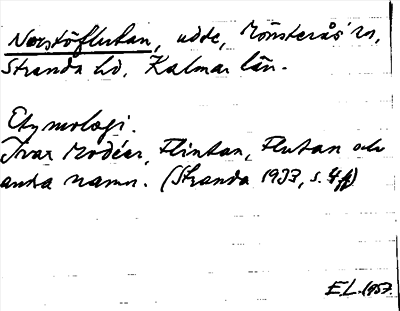 Norstöflutan, udde, Mönsterås' sn,
Stranda hd, Kalmar län.
Etymologi.
Ivar Modéer, Flintan, Flutan och
andra namn. (Stranda 1933, s. 4 ff)
E L. 1957.